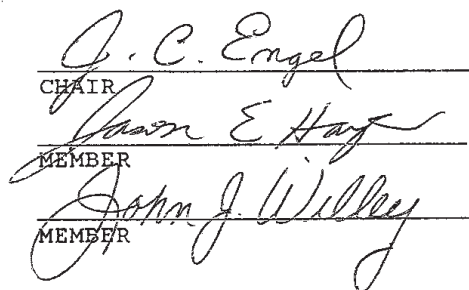 J. C. Engel
CHAIR
Jason E
MEMBER
John J. Willey
MEMBER